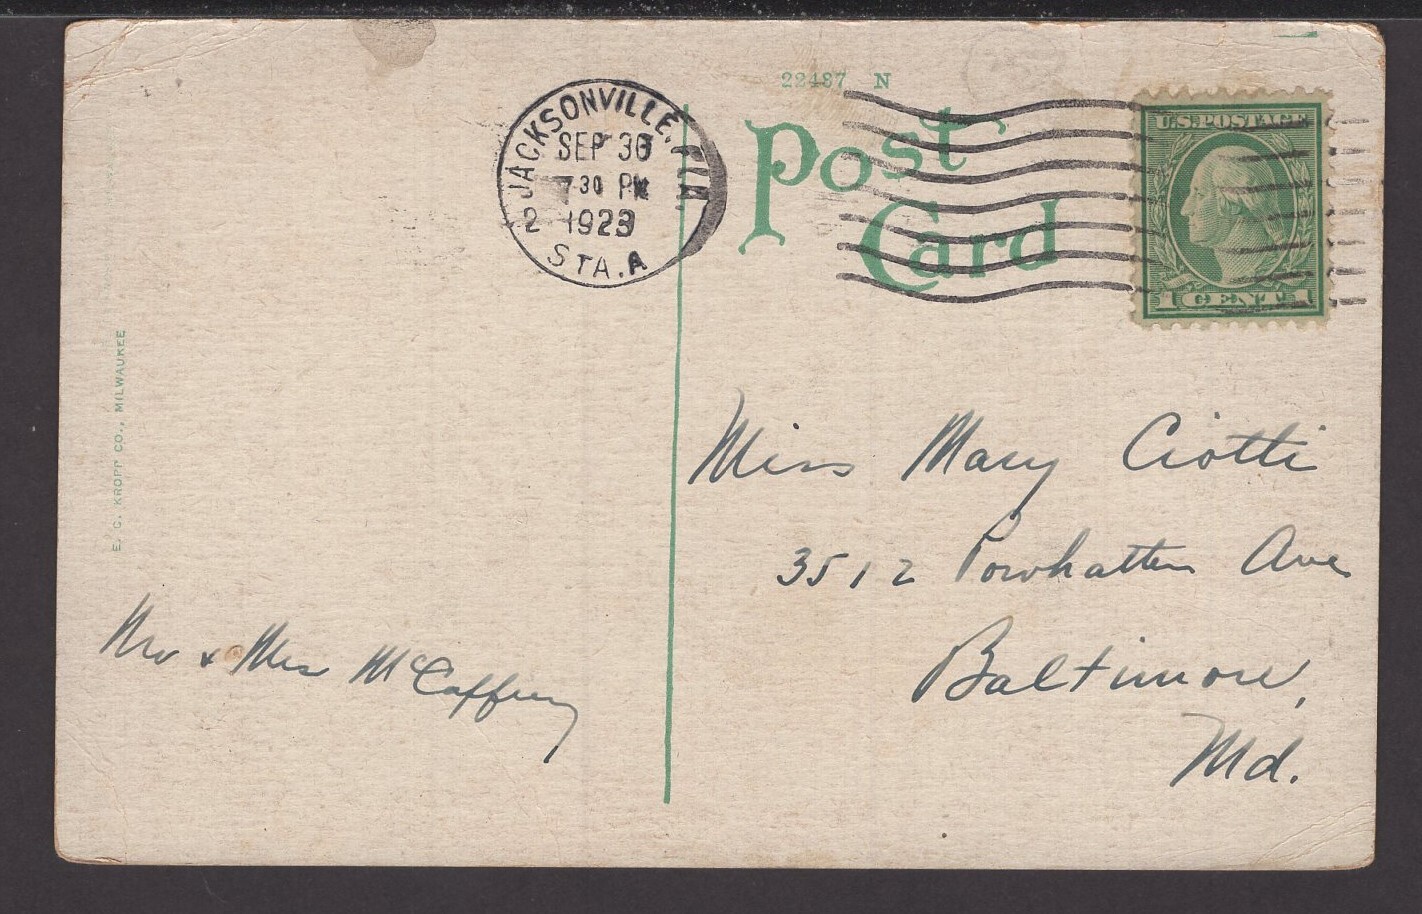 22487 N
JACKSONVILLE, FLA.
SEP 30
7-30 PM
2 1923
STA. A
Post
Card
U.S. POSTAGE
1 CENT 1
E. C. KROPP CO., MILWAUKEE
Miss Mary Ciotti
3512 Powhatten Ave
Baltimore,
Md.
Mr & Mrs McCaffrey